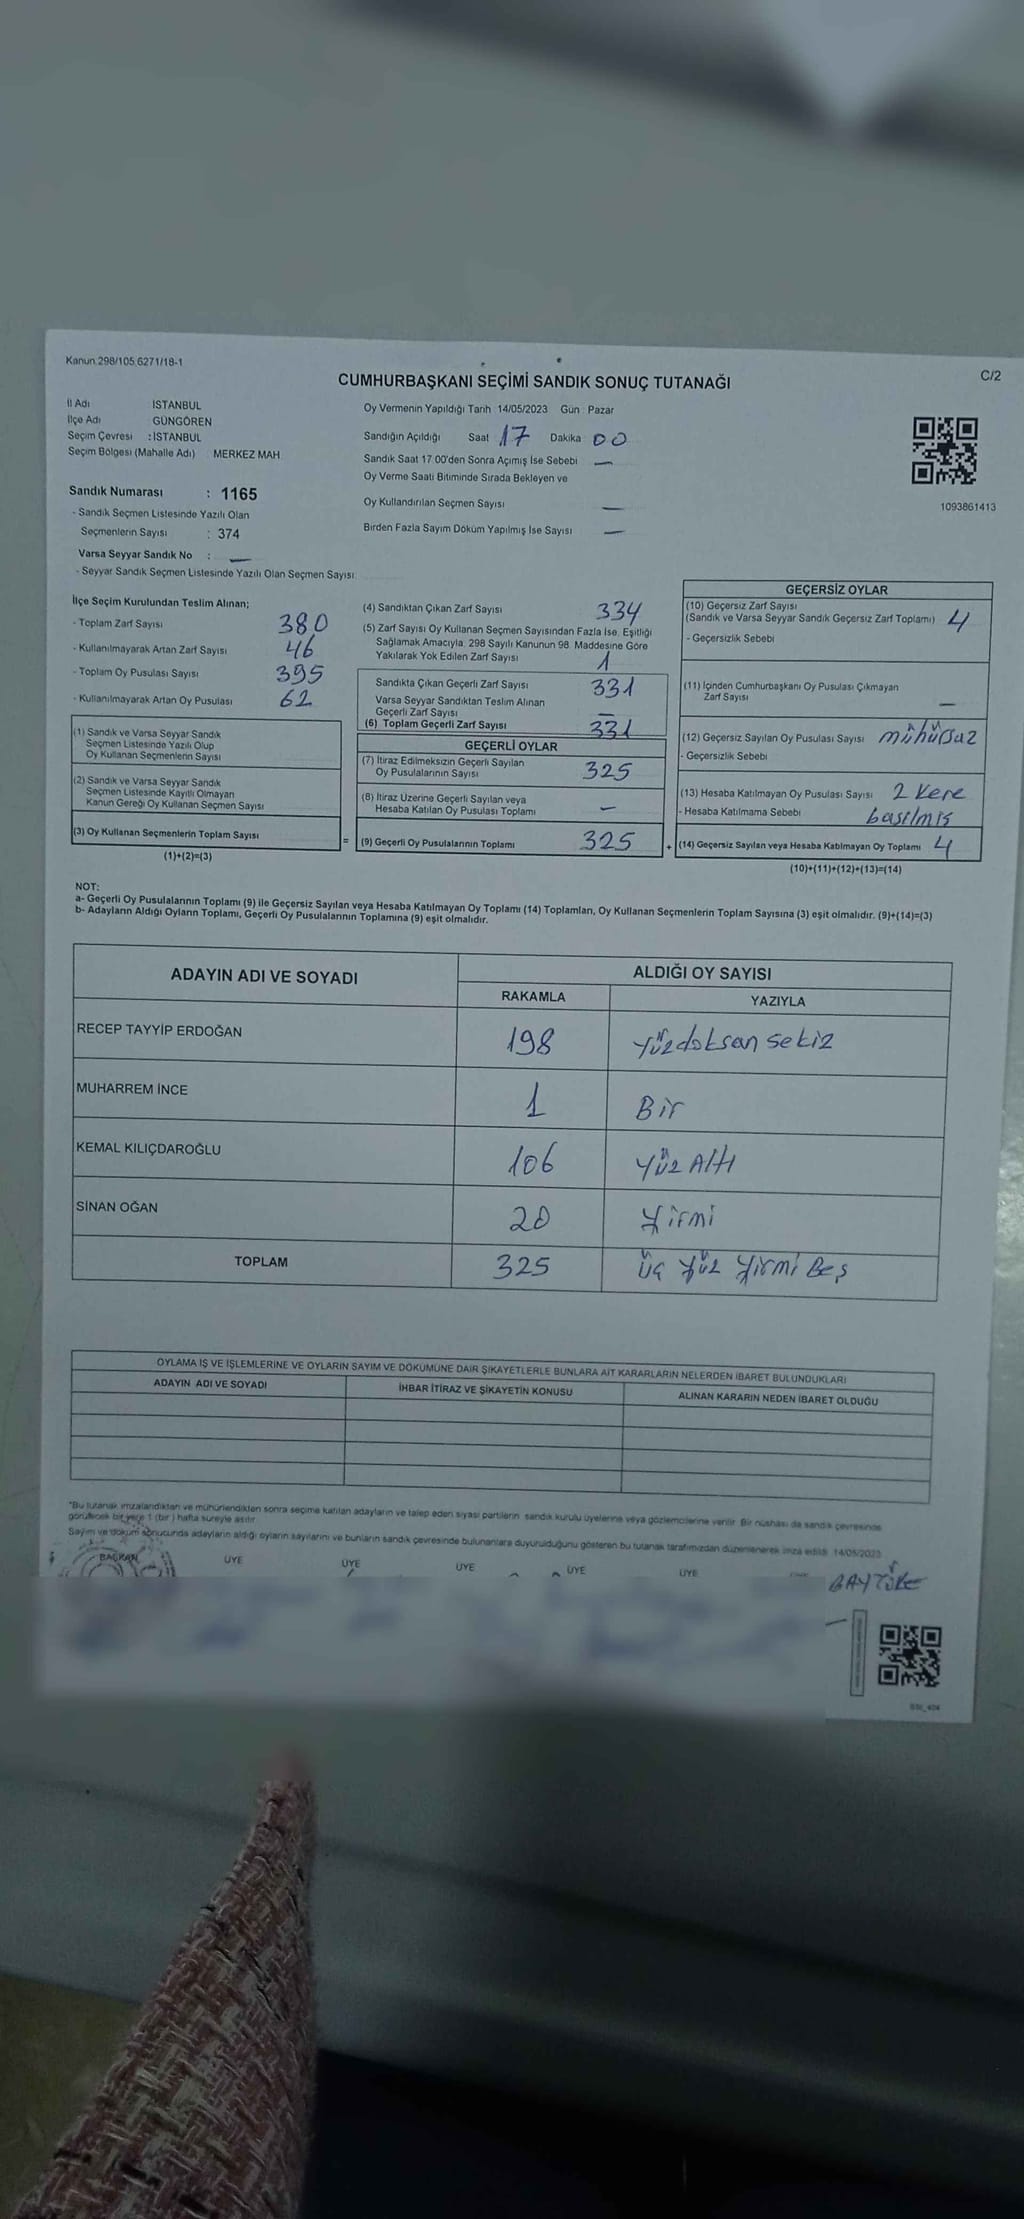 Kanun.298/105,6271/18-1
C/2
CUMHURBAŞKANI SEÇİMİ SANDIK SONUÇ TUTANAĞI
İl Adı İSTANBUL
İlçe Adı GÜNGÖREN
Seçim Çevresi : İSTANBUL
Seçim Bölgesi (Mahalle Adı) MERKEZ MAH
Sandık Numarası : 1165
- Sandık Seçmen Listesinde Yazılı Olan
Seçmenlerin Sayısı : 374
Varsa Seyyar Sandık No : —
- Seyyar Sandık Seçmen Listesinde Yazılı Olan Seçmen Sayısı:
Oy Vermenin Yapıldığı Tarih 14/05/2023 Gün : Pazar
Sandığın Açıldığı Saat 17 Dakika 00
Sandık Saat 17.00'den Sonra Açımış İse Sebebi —
Oy Verme Saati Bitiminde Sırada Bekleyen ve
Oy Kullandırılan Seçmen Sayısı —
Birden Fazla Sayım Döküm Yapılmış İse Sayısı —
1093861413
İlçe Seçim Kurulundan Teslim Alınan;
- Toplam Zarf Sayısı 380
- Kullanılmayarak Artan Zarf Sayısı 46
- Toplam Oy Pusulası Sayısı 395
- Kullanılmayarak Artan Oy Pusulası 62
(1) Sandık ve Varsa Seyyar Sandık
Seçmen Listesinde Yazılı Olup
Oy Kullanan Seçmenlerin Sayısı
(2) Sandık ve Varsa Seyyar Sandık
Seçmen Listesinde Kayıtlı Olmayan
Kanun Gereği Oy Kullanan Seçmen Sayısı
(3) Oy Kullanan Seçmenlerin Toplam Sayısı =
(1)+(2)=(3)
(4) Sandıktan Çıkan Zarf Sayısı 334
(5) Zarf Sayısı Oy Kullanan Seçmen Sayısından Fazla İse, Eşitliği
Sağlamak Amacıyla, 298 Sayılı Kanunun 98. Maddesine Göre
Yakılarak Yok Edilen Zarf Sayısı 1
Sandıkta Çıkan Geçerli Zarf Sayısı 331
Varsa Seyyar Sandıktan Teslim Alınan
Geçerli Zarf Sayısı —
(6) Toplam Geçerli Zarf Sayısı 331
GEÇERLİ OYLAR
(7) İtiraz Edilmeksizin Geçerli Sayılan
Oy Pusulalarının Sayısı 325
(8) İtiraz Üzerine Geçerli Sayılan veya
Hesaba Katılan Oy Pusulası Toplamı —
(9) Geçerli Oy Pusulalarının Toplamı 325 +
GEÇERSİZ OYLAR
(10) Geçersiz Zarf Sayısı
(Sandık ve Varsa Seyyar Sandık Geçersiz Zarf Toplamı) 4
- Geçersizlik Sebebi
(11) İçinden Cumhurbaşkanı Oy Pusulası Çıkmayan
Zarf Sayısı —
(12) Geçersiz Sayılan Oy Pusulası Sayısı mühürsüz
- Geçersizlik Sebebi
(13) Hesaba Katılmayan Oy Pusulası Sayısı 2 kere
- Hesaba Katılmama Sebebi basılmış
(14) Geçersiz Sayılan veya Hesaba Katılmayan Oy Toplamı 4
(10)+(11)+(12)+(13)=(14)
NOT:
a- Geçerli Oy Pusulalarının Toplamı (9) ile Geçersiz Sayılan veya Hesaba Katılmayan Oy Toplamı (14) Toplamları, Oy Kullanan Seçmenlerin Toplam Sayısına (3) eşit olmalıdır. (9)+(14)=(3)
b- Adayların Aldığı Oyların Toplamı, Geçerli Oy Pusulalarının Toplamına (9) eşit olmalıdır.
ADAYIN ADI VE SOYADI ALDIĞI OY SAYISI
RAKAMLA YAZIYLA
RECEP TAYYİP ERDOĞAN 198 yüzdoksan sekiz
MUHARREM İNCE 1 Bir
KEMAL KILIÇDAROĞLU 106 yüz Altı
SİNAN OĞAN 20 yirmi
TOPLAM 325 üç yüz yirmi Beş
OYLAMA İŞ VE İŞLEMLERİNE VE OYLARIN SAYIM VE DÖKÜMÜNE DAİR ŞİKAYETLERLE BUNLARA AİT KARARLARIN NELERDEN İBARET BULUNDUKLARI
ADAYIN ADI VE SOYADI İHBAR İTİRAZ VE ŞİKAYETİN KONUSU ALINAN KARARIN NEDEN İBARET OLDUĞU
*Bu tutanak imzalandıktan ve mühürlendikten sonra seçime katılan adayların ve talep eden siyasi partilerin sandık kurulu üyelerine veya gözlemcilerine verilir. Bir nüshası da sandık çevresinde
görülecek bir yere 1 (bir) hafta süreyle asılır.
Sayım ve döküm sonucunda adayların aldığı oyların sayılarını ve bunların sandık çevresinde bulunanlara duyurulduğunu gösteren bu tutanak tarafımızdan düzenlenerek imza edildi. 14/05/2023
BAŞKAN ÜYE ÜYE ÜYE ÜYE ÜYE